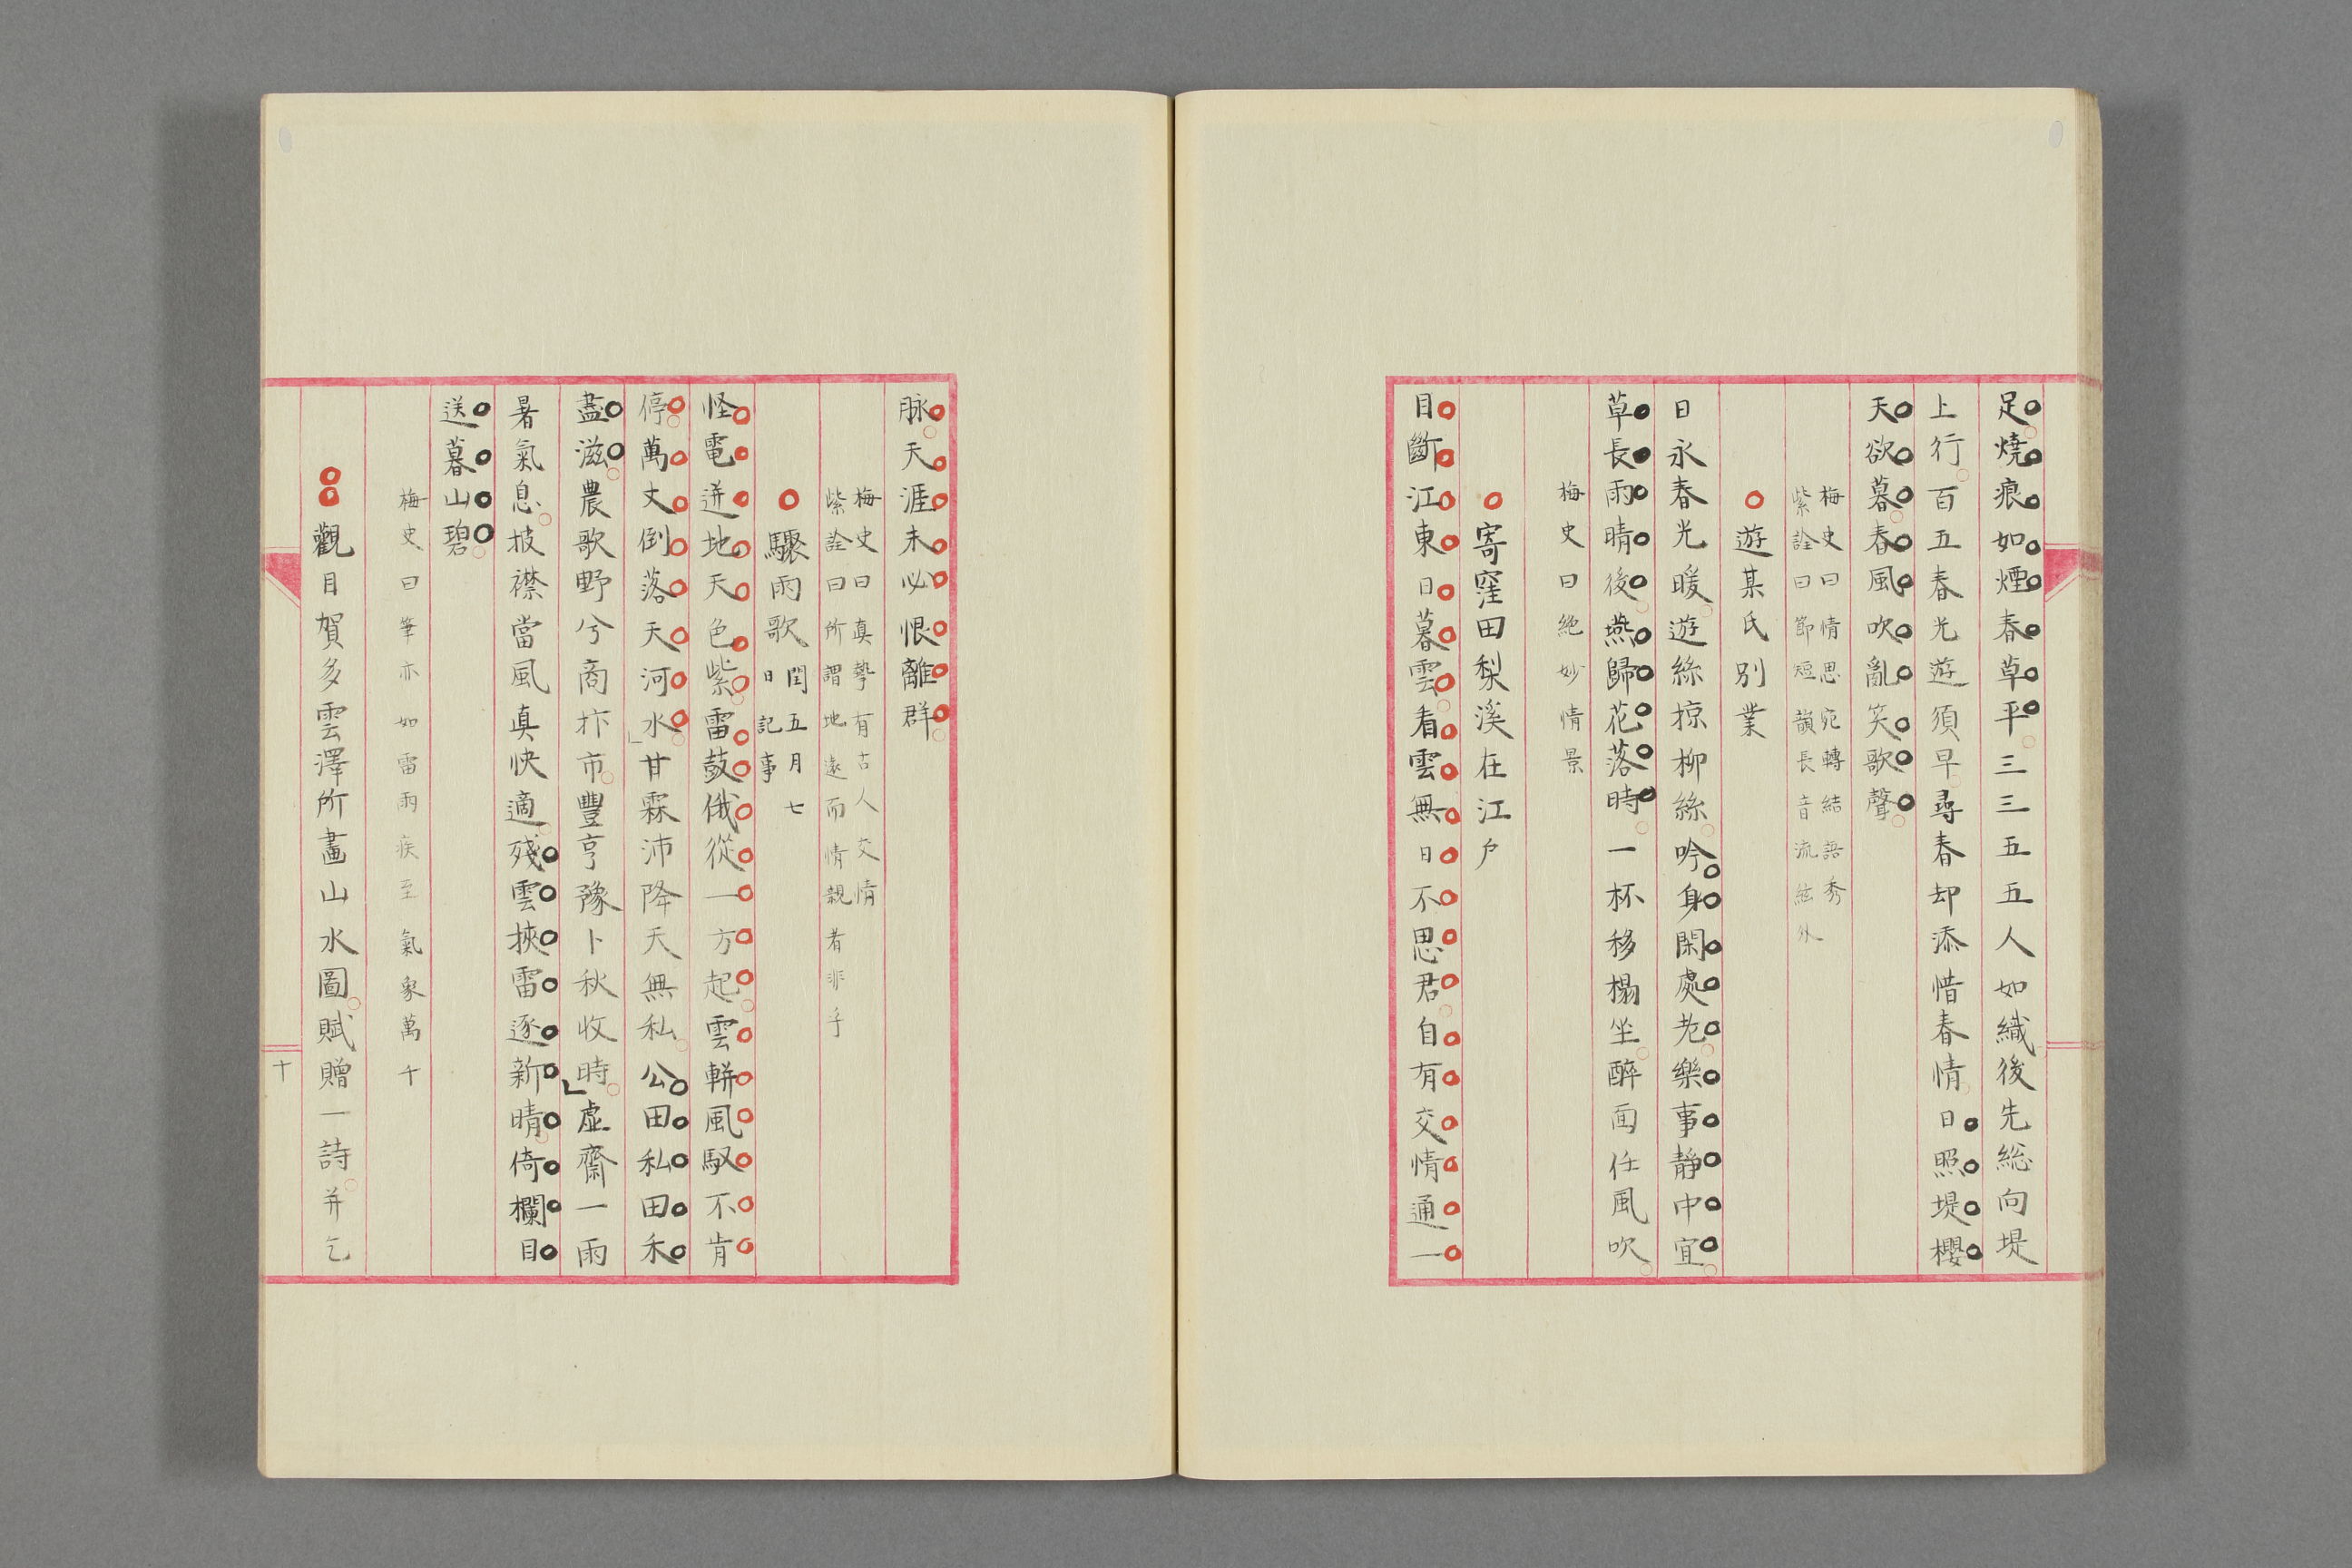 足燒痕如煙春草平三三五五人如織後先総向堤
上行百五春光遊須早尋春却添惜春情日照堤櫻
天欲暮春風吹亂笑歌聲
梅史曰情思宛轉結語秀
紫詮曰節短韻長音流絃外
遊某氏別業
日永春光暖遊絲掠柳絲吟身閑處老樂事靜中宜
草長雨晴後燕歸花落時一杯移榻坐醉面任風吹
梅史曰絶妙情景
寄窪田梨溪在江戸
目斷江東日暮雲看雲無日不思君自有交情通一
脉天涯未必恨離群
梅史曰真摯有古人交情
紫詮曰所謂地遠而情親者非乎
驟雨歌閏五月七
日記事
怪電迸地天色紫雷鼓俄從一方起雲軿風馭不肯
停萬丈倒落天河水甘霖沛降天無私公田私田禾
盡滋農歌野兮商抃市豐亨豫卜秋收時虛齋一雨
暑氣息披襟當風真快適殘雲挾雷逐新晴倚欄目
送暮山碧
梅史曰筆亦如雷雨疾至氣象萬千
觀目賀多雲澤所畫山水圖賦贈一詩并乞
十